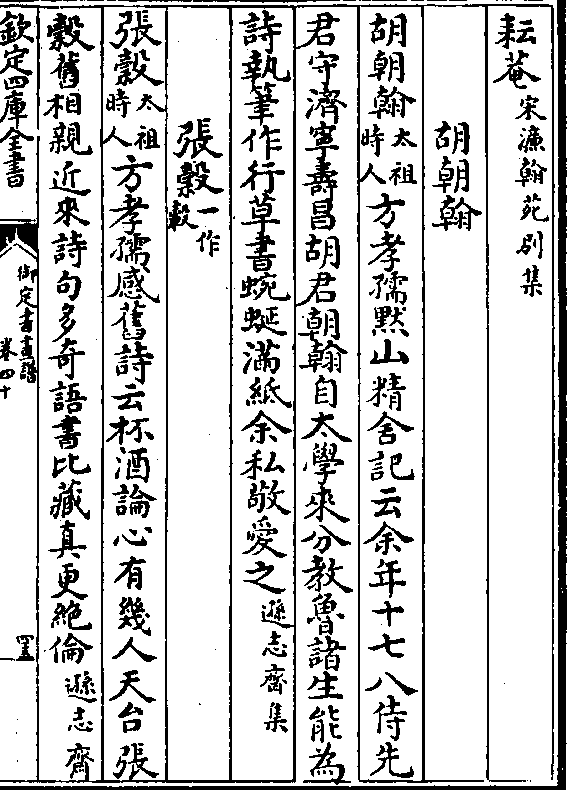 耘菴宋濂翰苑别集
胡朝翰
胡朝翰太祖時人方孝孺默山精舍記云余年十七八侍先
君守濟寧壽昌胡君朝翰自太學來分教魯諸生能為
詩執筆作行草書蜿蜒滿紙余私敬愛之遜志齋集
張㲄一作毅
張㲄太祖時人方孝孺感舊詩云杯酒論心有幾人天台張
㲄舊相親近來詩句多奇語書比藏真更絶倫遜志齋
欽定四庫全書
御定書畫譜
卷四十